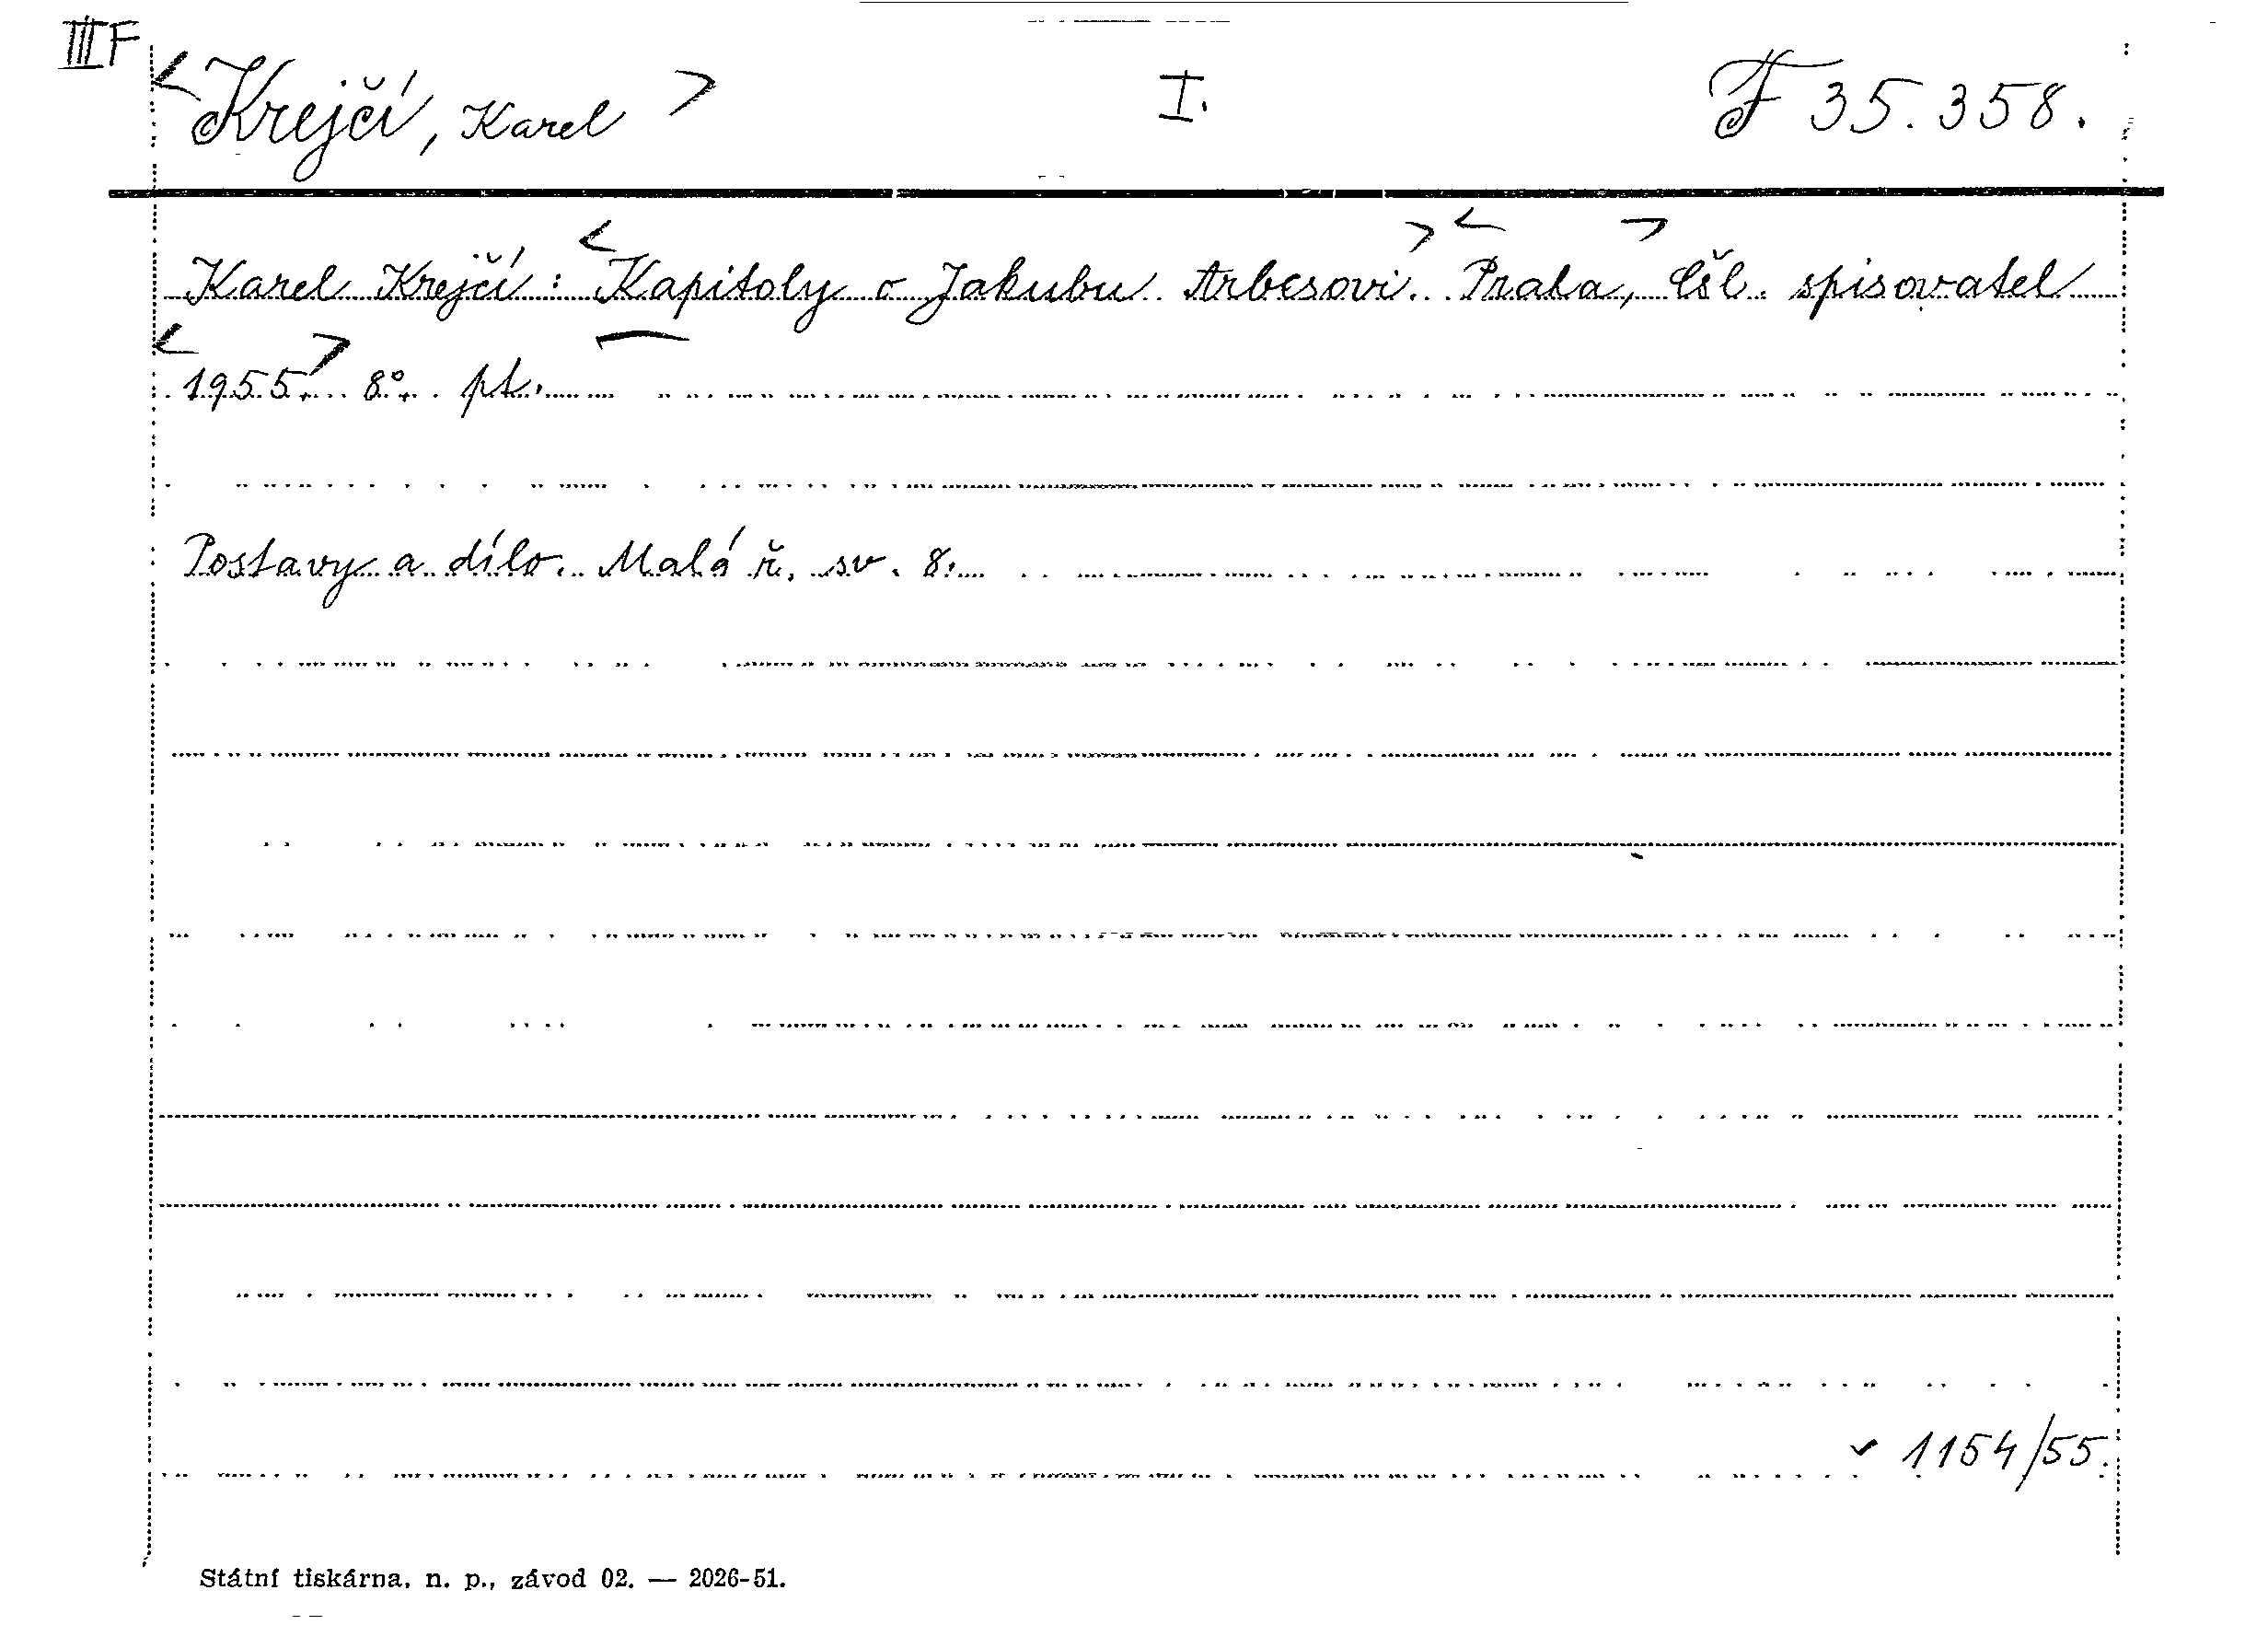 III F
< Krejčí, Karel > I. F 35.358.
Karel Krejčí: <Kapitoly o Jakubu Arbesovi.> <Praha,> Čsl. spisovatel
<1955.> 8°. pt.
Postavy a dílo. Malá ř. sv. 8.
1154/55.
Státní tiskárna, n. p., závod 02. — 2026-51.